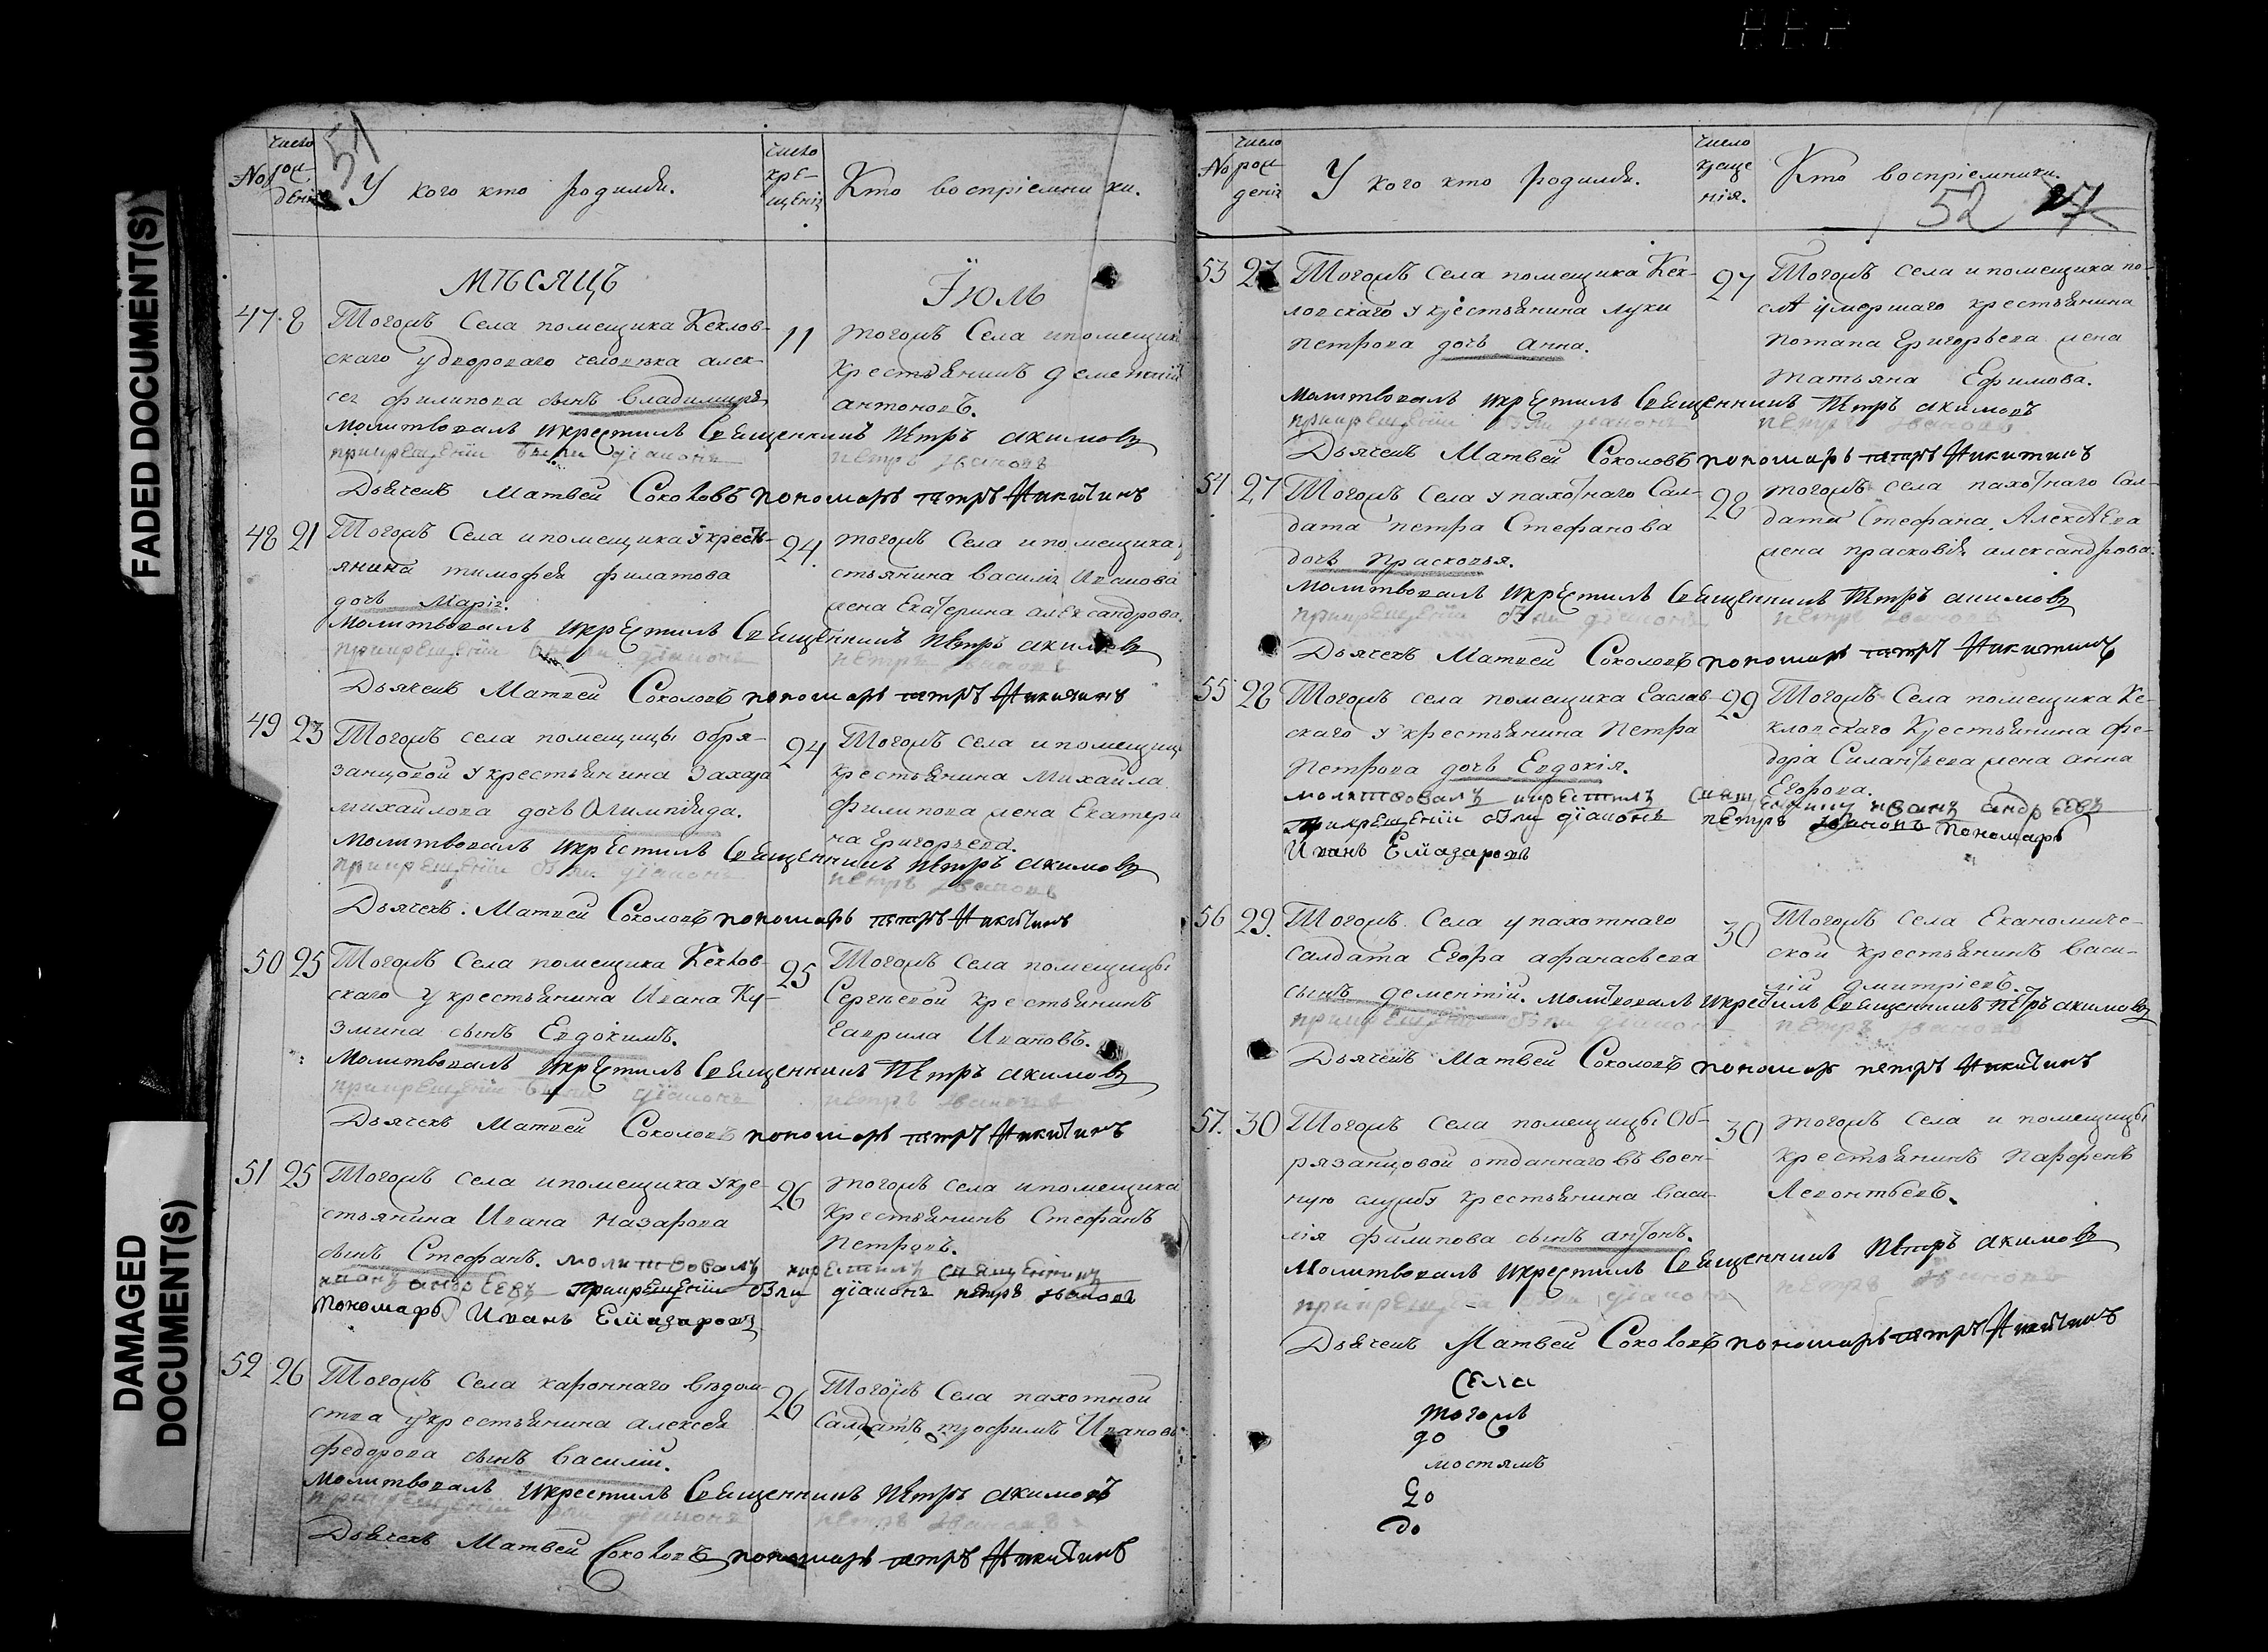 FADED DOCUMENT(S)
DAMAGED
DOCUMENT(S)
51
No
число
рож
денія
У кого кто родился.
число
кре-
щенія
Кто воспріемники.
МѢСЯЦЪ
Їюль
47. 8
Тогожъ Села помещика Кехлов-
скаго у двороваго человѣка алек-
сея филипова сынъ Владимиръ
11
тогожъ Села ипомещика
Крестьянинъ дементий
антоновъ.
Молитвовалъ икрестилъ Священникъ Петръ акимовъ
прикрещении были діаконъ петръ Ивановъ
Дьячекъ Матвей Соколовъ пономарь петръ Никитинъ
48 21
Тогожъ Села ипомещика укресть-
янина тимофея филатова
дочь Марія.
24.
тогожъ Села ипомещика
стьянина Василія Иванова
жена Екатерина александрова.
Молитвовалъ икрестилъ Священникъ Петръ акимовъ
прикрещении были діаконъ петръ Ивановъ
Дьячекъ Матвей Соколовъ пономарь петръ Никитинъ
49 23
Тогожъ села помещицы Обря-
занцовой укрестьянина Захара
михайлова дочь Олимпіяда.
24
Тогожъ села ипомещицы
крестьянина Михайла
филипова жена Екатери
на Григорьева.
Молитвовалъ икрестилъ Священникъ Петръ акимовъ
прикрещении были діаконъ петръ Ивановъ
Дьячекъ. Матвей Соколовъ пономарь петръ Никитинъ
50 25
Тогожъ Села помещика Кехлов-
скаго укрестьянина Ивана Ку-
змина сынъ Евдокимъ.
25
Тогожъ Села помещицы
Сергѣевой крестьянинъ
Гаврила Ивановъ.
Молитвовалъ икрестилъ Священникъ Петръ акимовъ
прикрещении были діаконъ петръ Ивановъ
Дьячекъ Матвей Соколовъ пономарь петръ Никитинъ
51 25
Тогожъ села ипомещика укре-
стьянина Ивана Назарова
сынъ Стефанъ.
26
тогожъ села ипомещика
Крестьянинъ Стефанъ
Петровъ.
молитвовалъ икрестилъ священникъ
иванъ андреевъ прикрещении были діаконъ петръ Ивановъ
Пономарь Иванъ Елиазаровъ
52 26
Тогожъ Села кароннаго вѣдом-
ства укрестьянина алексея
федорова сынъ василій.
26
Тогожъ Села пахотной
Салдатъ трофимъ Ивановъ
Молитвовалъ икрестилъ Священникъ Петръ акимовъ
прикрещении были діаконъ петръ Ивановъ
Дьячекъ Матвей Соколовъ пономарь петръ Никитинъ
No
число
рож
денія
У кого кто родился.
число
креще
нія.
Кто воспріемники.
52 27
53 27
Тогожъ села помещика Кех-
ловскаго укрестьянина луки
петрова дочь анна.
27
Тогожъ села ипомещика по-
слѣ умершаго крестьянина
потапа Григорьева жена
татьяна Ефимова.
Молитвовалъ икрестилъ Священникъ Петръ акимовъ
прикрещении были діаконъ петръ Ивановъ
Дьячекъ Матвей Соколовъ пономарь петръ Никитинъ
54 27
Тогожъ Села упахотнаго Сал-
дата петра Стефанова
дочь Прасковья.
28
тогожъ села пахотнаго Сал-
дата Стефана Алексѣева
жена прасковія александрова.
Молитвовалъ икрестилъ Священникъ Петръ акимовъ
прикрещении были діаконъ петръ Ивановъ
Дьячекъ Матвей Соколовъ пономарь петръ Никитинъ
55 28
Тогожъ села помещика Еаслав-
скаго укрестьянина Петра
Петрова дочь Евдокія.
29
Тогожъ Села помещика Ке-
хловскаго Крестьянина фе-
дора Силантьева жена анна
Егорова.
молитвовалъ икрестилъ священникъ иванъ андреевъ
прикрещении были діаконъ петръ Ивановъ пономарь
Иванъ Елиазаровъ
56 29.
Тогожъ Села упахотнаго
Салдата Егора афанасьева
сынъ дементій.
30
Тогожъ села Економиче-
ской крестьянинъ Васи-
лій дмитріевъ.
молитвовалъ икрестилъ Священникъ петръ акимовъ
прикрещении были діаконъ петръ Ивановъ
Дьячекъ Матвей Соколовъ пономарь петръ Никитинъ
57. 30
Тогожъ села помещицы Об-
рязанцовой отданнаго въ воен-
ную службу крестьянина васи-
лія филипова сынъ антонъ.
30
тогожъ села и помещицы
крестьянинъ Парфенъ
Леонтьевъ.
Молитвовалъ икрестилъ Священникъ Петръ акимовъ
прикрещении были діаконъ петръ Ивановъ
Дьячекъ Матвей Соколовъ пономарь петръ Никитинъ
Села
тогожъ
до
до